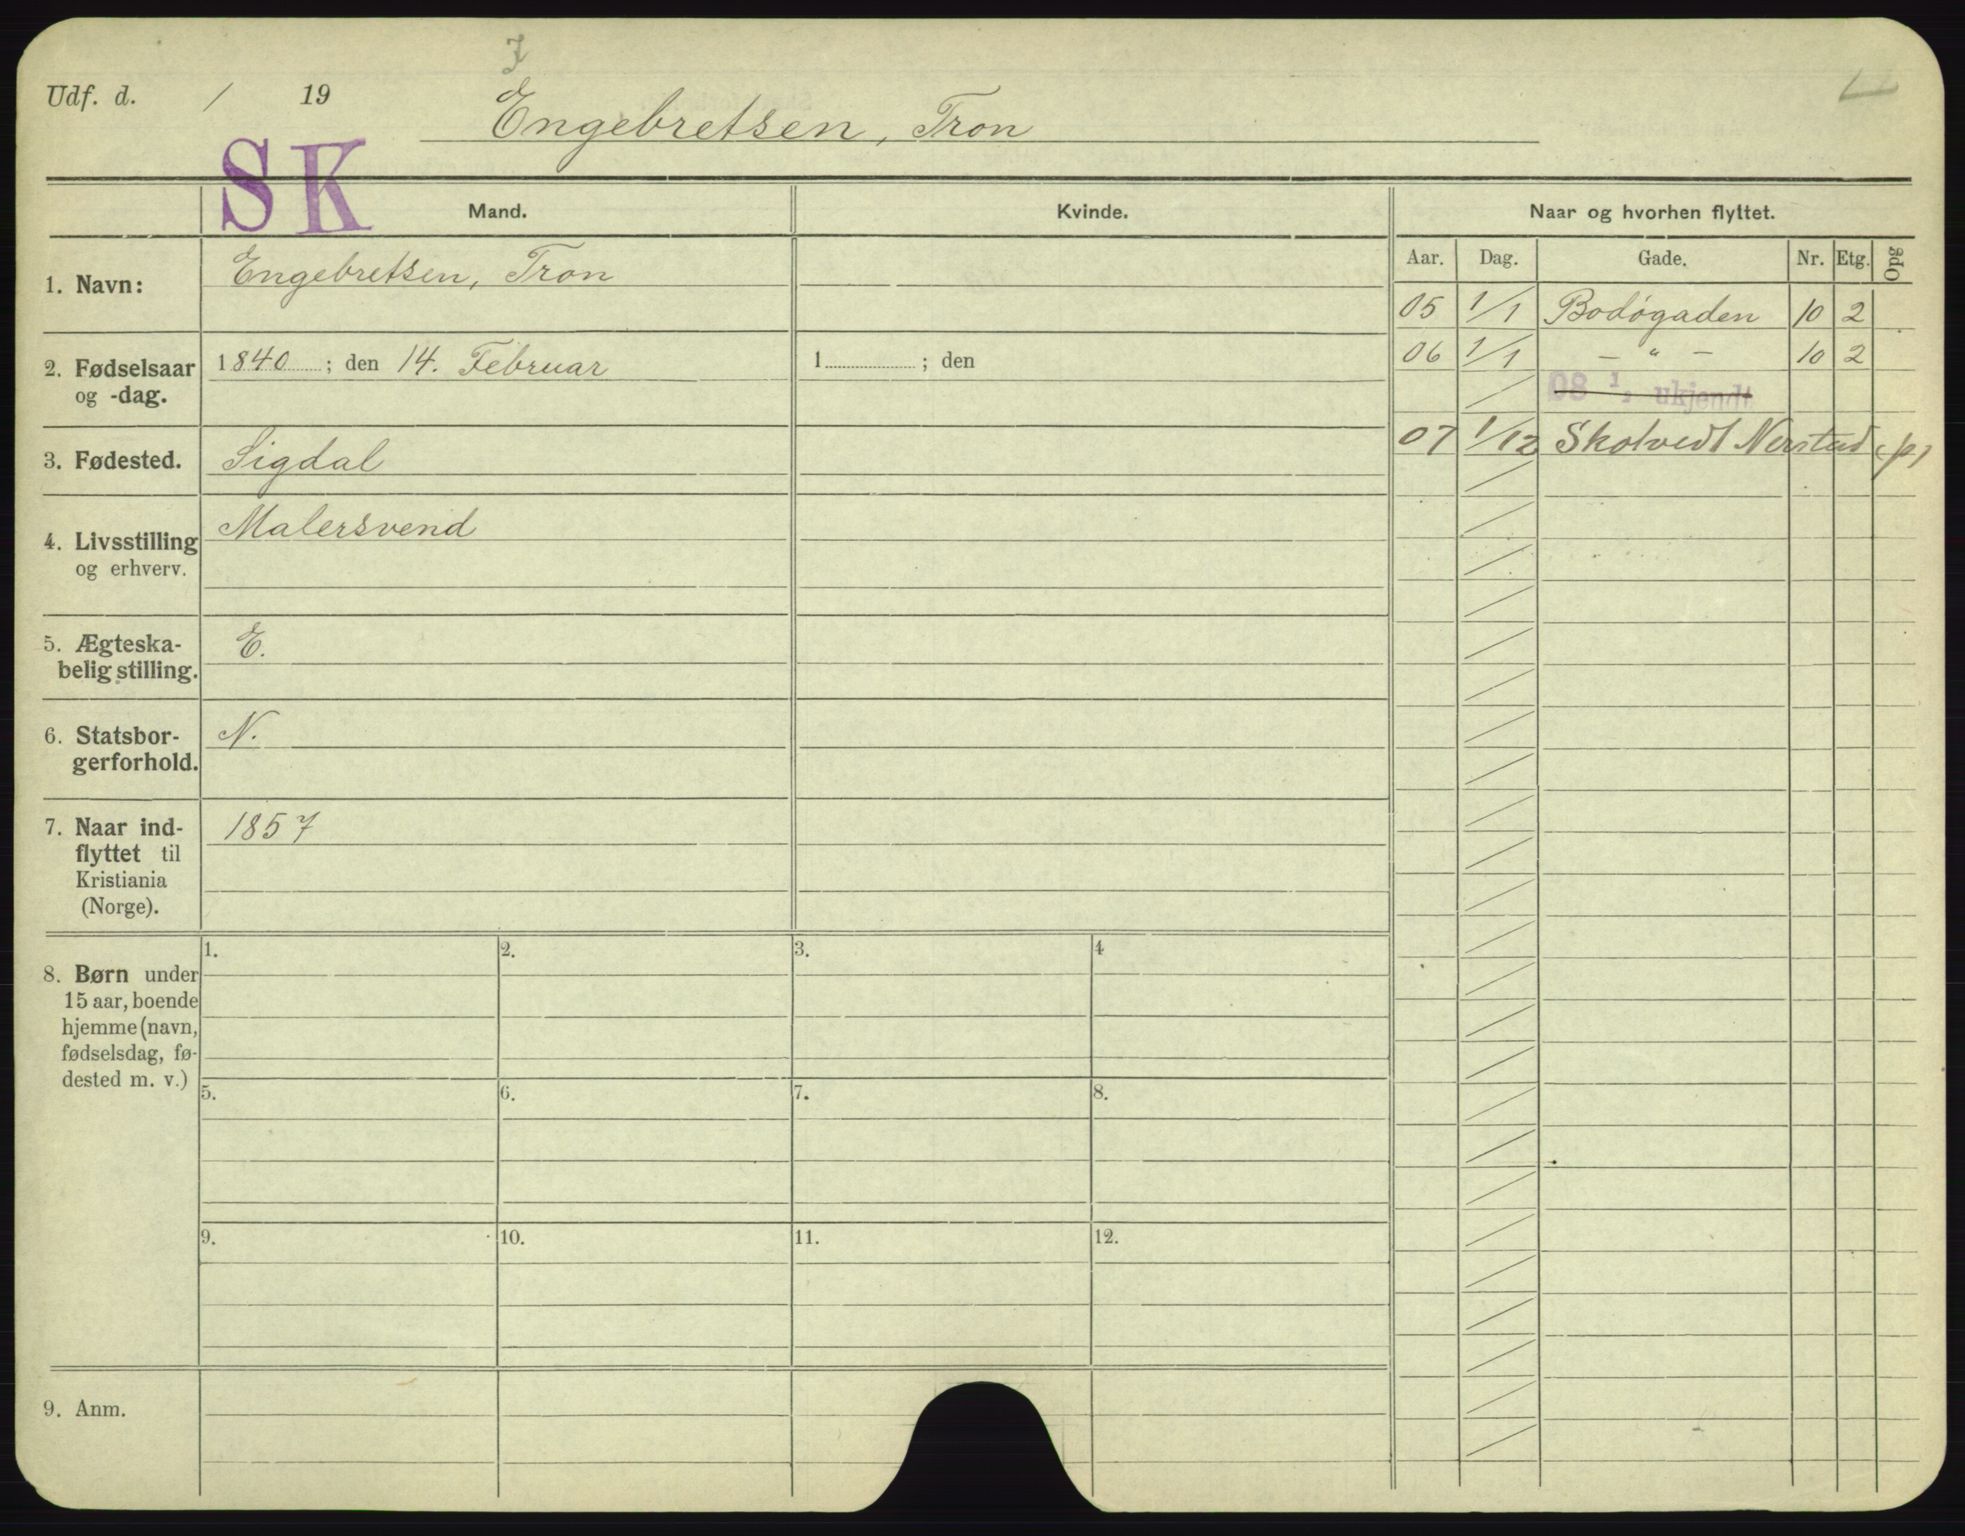 7
Udf. d. / 19
Engebretsen, Tron
SK
Mand. Kvinde. Naar og hvorhen flyttet.
Aar. Dag. Gade. Nr. Etg. Opg
1. Navn: Engebretsen, Tron
05 1/1 Bodøgaden 10 2
06 1/1 — „ — 10 2
08 ukjendt
07 1/12
2. Fødselsaar og -dag. 1840 ; den 14. Februar
1 ; den
3. Fødested. Sigdal
4. Livsstilling og erhverv. Malersvend
5. Ægteska-
belig stilling. E.
6. Statsbor-
gerforhold. N.
7. Naar ind-
flyttet til
Kristiania
(Norge). 1857
8. Børn under
15 aar, boende
hjemme (navn,
fødselsdag, fø-
dested m. v.)
1. 2. 3. 4
5. 6. 7. 8.
9. 10. 11. 12.
9. Anm.